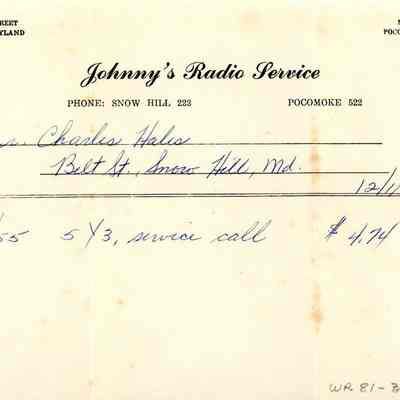 REET
YLAND
POCO
Johnny's Radio Service
PHONE: SNOW HILL 223
POCOMOKE 522
Charles Hales
Belt St., Snow Hill, Md.
12/1
55 5Y3, service call $4.74
WR 81-